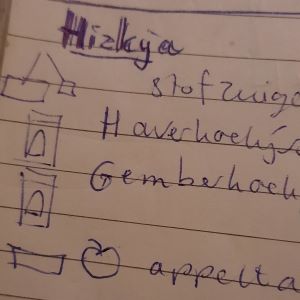 Hizkya
stofzuig
Haverkoekj
Gemberkoek
appelta